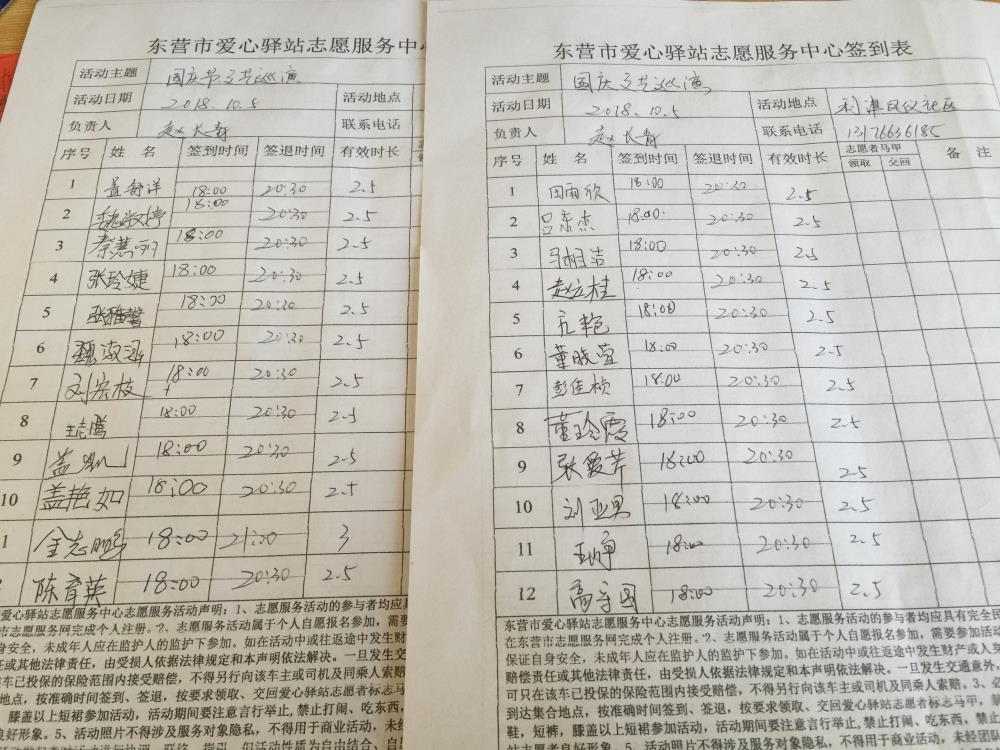 东营市爱心驿站志愿服务中
活动主题 国庆节文艺巡演
活动日期 2018.10.5 活动地点
负责人 赵长青 联系电话
序号 姓 名 签到时间 签退时间 有效时长
1 18:00 20:30 2.5
2 18:00 20:30 2.5
3 18:00 20:30 2.5
4 张玲婕 18:00 20:30 2.5
5 张雅馨 18:00 20:30 2.5
6 18:00 20:30 2.5
7 刘宾枝 18:00 20:30 2.5
8 18:00 20:30 2.5
9 盖 18:00 20:30 2.5
10 盖艳如 18:00 20:30 2.5
1 金志鹏 18:00 21:00 3
陈育英 18:00 20:30 2.5
爱心驿站志愿服务中心志愿服务活动声明：1、志愿服务活动的参与者均应具
市志愿服务网完成个人注册。2、志愿服务活动属于个人自愿报名参加，需要
身安全，未成年人应在监护人的监护下参加。如在活动中或往返途中发生财产
任或其他法律责任，由受损人依据法律规定和本声明依法解决。一旦发生交
车已投保的保险范围内接受赔偿，不得另行向该车主或司机及同乘人索赔
地点，按准确时间签到、签退，按要求领取、交回爱心驿站志愿者标志马
膝盖以上短裙参加活动，活动期间要注意言行举止，禁止打闹、吃东西，
良好形象。5、活动照片不得涉及服务对象隐私，不得用于商业活动，未经
东营市爱心驿站志愿服务中心签到表
活动主题 国庆文艺巡演
活动日期 2018.10.5 活动地点 利津凤仪社区
负责人 赵长青 联系电话 13176636185
序号 姓 名 签到时间 签退时间 有效时长 志愿者马甲 领取 交回 备 注
1 田雨欣 18:00 20:30 2.5
2 吕东杰 18:00 20:30 2.5
3 马相洁 18:00 20:30 2.5
4 赵立桂 18:00 20:30 2.5
5 18:00 20:30 2.5
6 董晓萱 18:00 20:30 2.5
7 彭佳桢 18:00 20:30 2.5
8 董玲霞 18:00 20:30 2.5
9 张爱芹 18:00 20:30 2.5
10 刘亚男 18:00 20:30 2.5
11 18:00 20:30 2.5
12 高守国 18:00 20:30 2.5
东营市爱心驿站志愿服务中心志愿服务活动声明：1、志愿服务活动的参与者均应具有完全民
在东营市志愿服务网完成个人注册。2、志愿服务活动属于个人自愿报名参加，需要参加活动
保证自身安全，未成年人应在监护人的监护下参加。如在活动中或往返途中发生财产或人身
赔偿责任或其他法律责任，由受损人依据法律规定和本声明依法解决。一旦发生交通意外，
可只在该车已投保的保险范围内接受赔偿，不得另行向该车主或司机及同乘人索赔。3、必
到达集合地点，按准确时间签到、签退，按要求领取、交回爱心驿站志愿者标志马甲，
鞋，短裤，膝盖以上短裙参加活动，活动期间要注意言行举止，禁止打闹、吃东西，禁止
志愿者良好形象。5、活动照片不得涉及服务对象隐私，不得用于商业活动，未经团